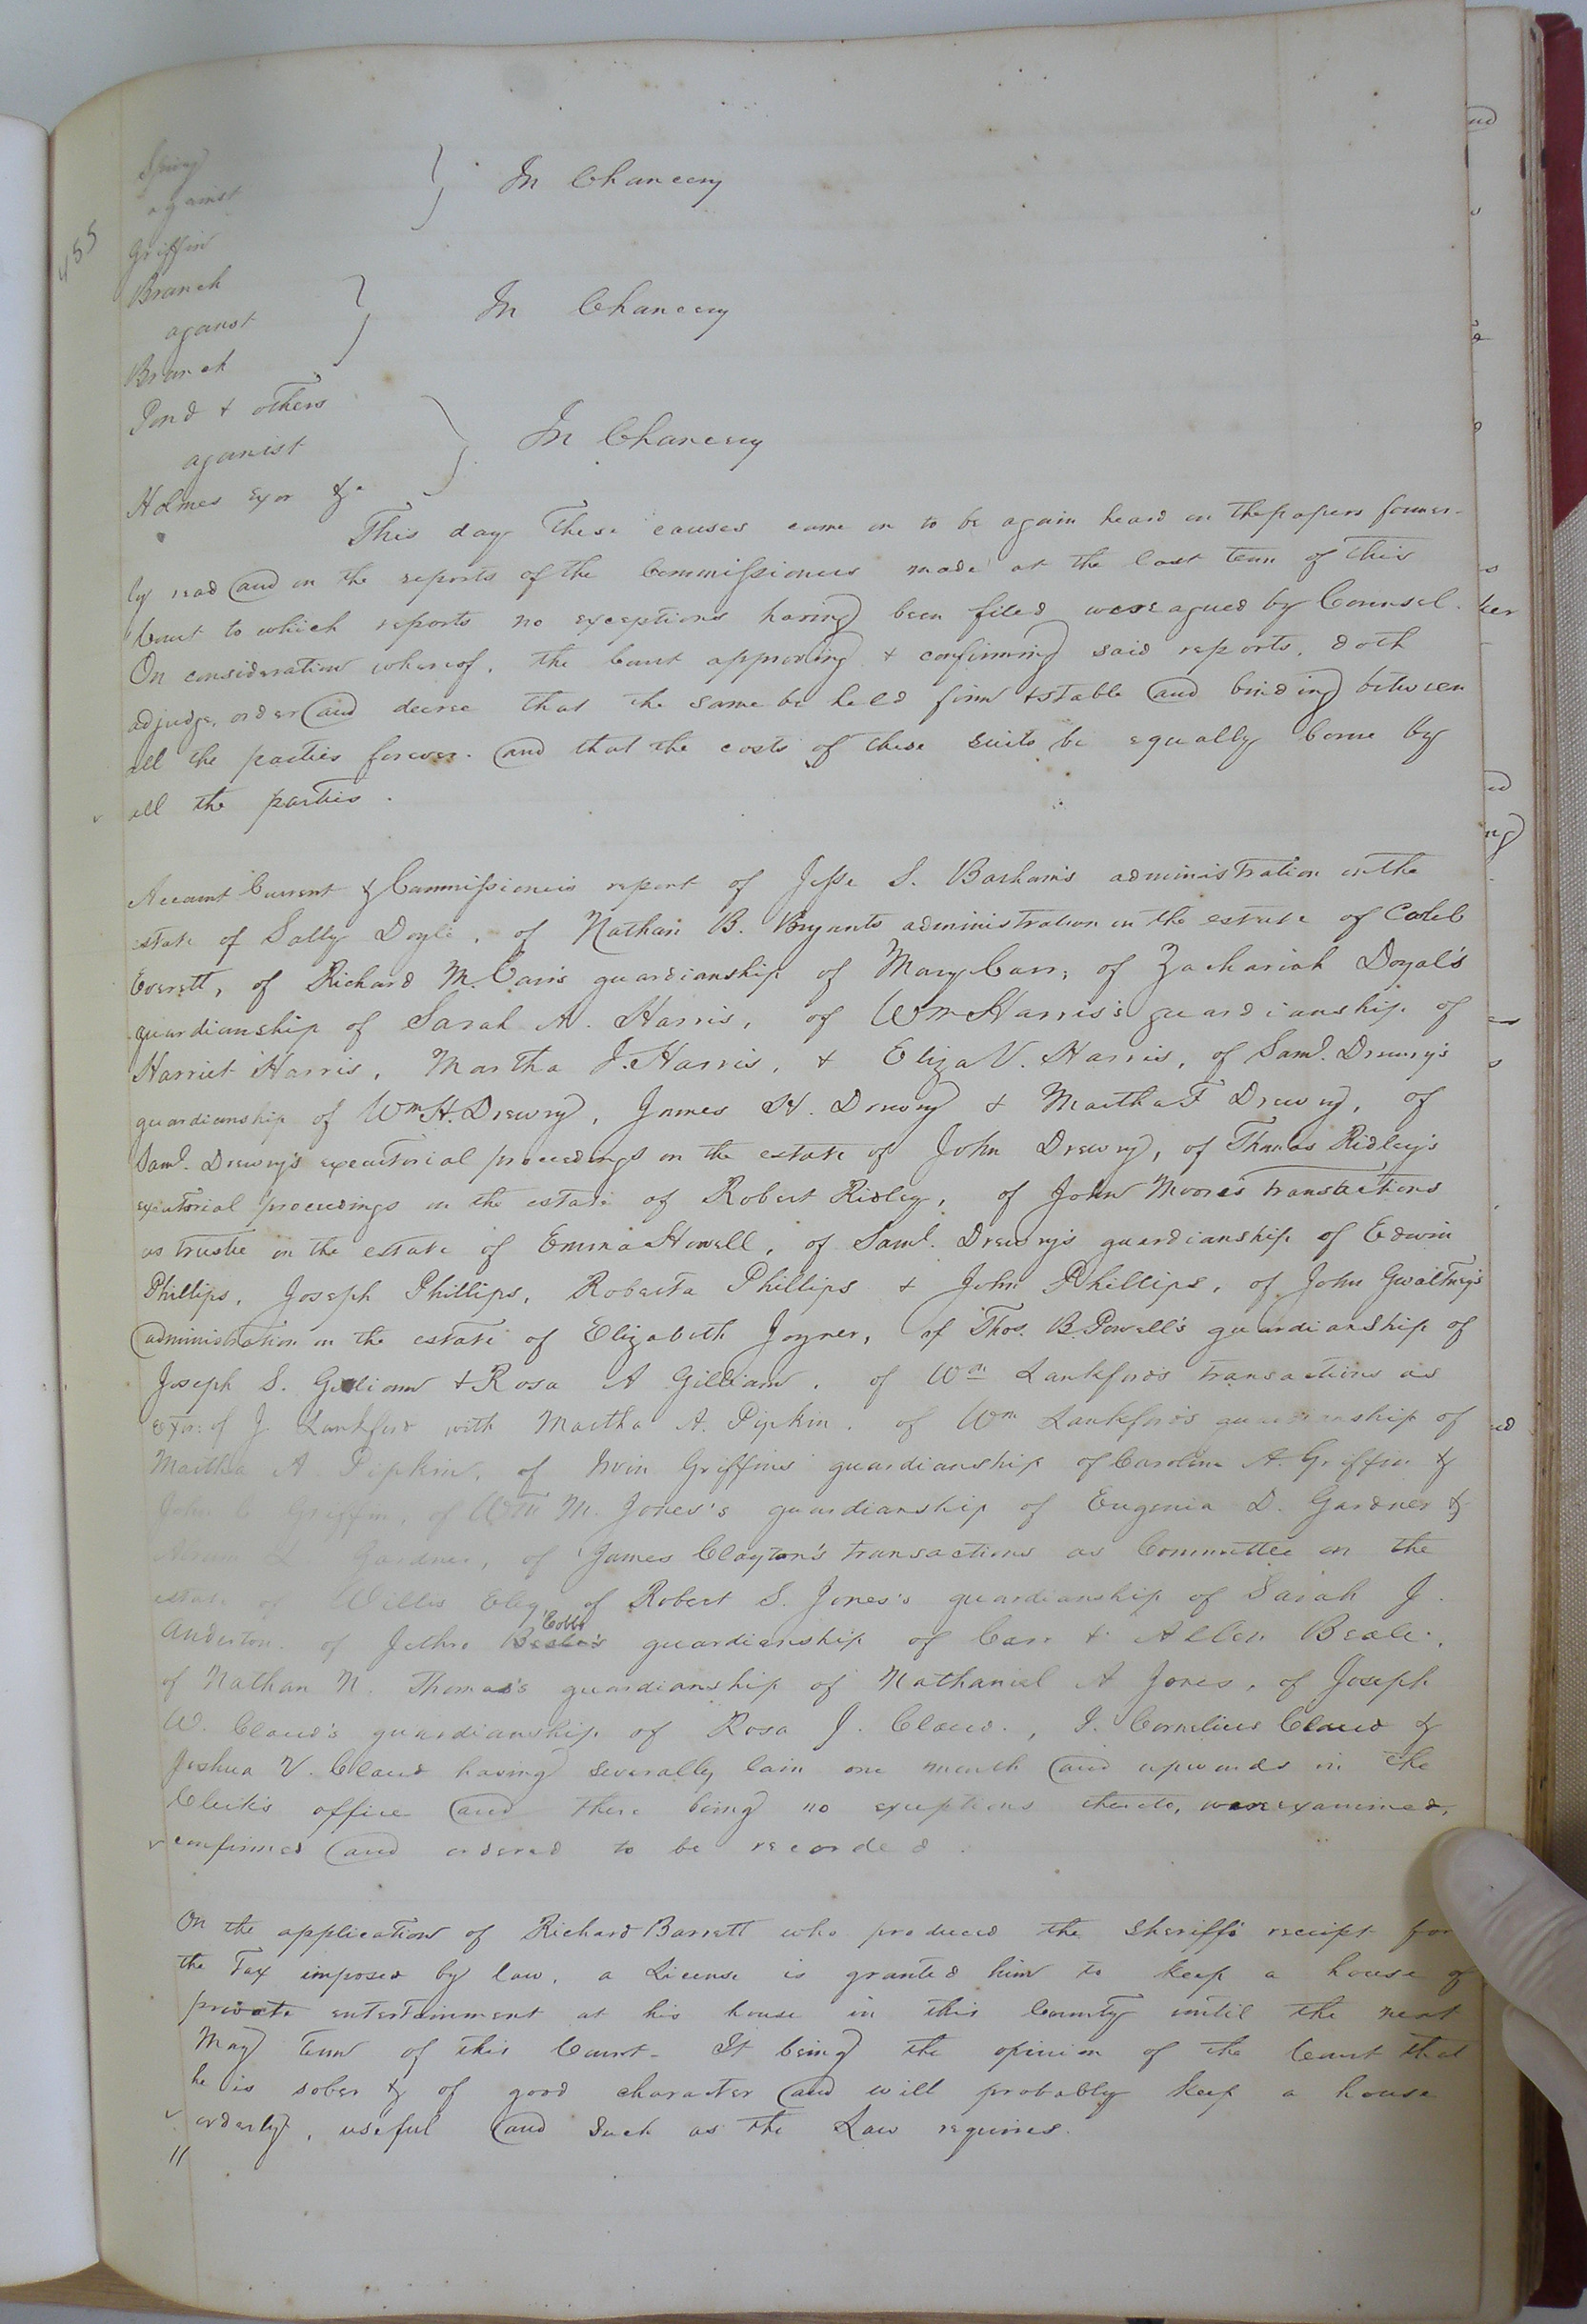 455
Spivey
against } In Chancery
Griffin
Branch
against } In Chancery
Branch
Pond & others
against } In Chancery
Holmes exor &c
This day these causes came on to be again heard on the papers former-
ly read and on the reports of the Commissioners made at the last term of this
Court to which reports no exceptions having been filed were agued by Counsel.
On consideration whereof, the Court approving & confirming said reports, doth
adjudge, order and decree that the same be held firm & stable and binding between
all the parties forever. and that the costs of these suits be equally borne by
all the parties.
Account Current & Commissioners report of Jesse S. Barham's administration on the
estate of Sally Doyle, of Nathan B. Bryants administration on the estate of Caleb
Everett, of Richard M. Carr's guardianship of Mary Carr, of Zachariah Doyal's
guardianship of Sarah A. Harris, of Wm Harris's guardianship of
Harriet Harris, Martha J. Harris, & Eliza V. Harris, of Saml. Drewry's
guardianship of Wm H. Drewry, James H. Drewry & Martha F Drewry, of
Saml. Drewry's executorial proceedings on the estate of John Drewry, of Thomas Ridley's
executorial proceedings on the estate of Robert Ridley, of John Moore's transactions
as trustee on the estate of Emma Howell, of Saml. Drewry's guardianship of Edwin
Phillips, Joseph Phillips, Roberta Phillips & John Phillips, of John Gwaltney's
administration on the estate of Elizabeth Joyner, of Thos. B. Powell's guardianship of
Joseph S. Gilliam & Rosa A Gilliam, of Wm Lankford's transactions as
exor. of J Lankford with Martha A. Pipkin, of Wm Lankford's guardianship of
Martha A Pipkin, of Irvin Griffin's guardianship of Caroline A. Griffin &
John Griffin, of Wm M. Jones's guardianship of Eugenia D. Gardner &
Gardner, of James Clayton's transactions as Committee on the
estate of Willis Eley, of Robert S. Jones's guardianship of Sarah J.
Anderton, of Jethro Beale's Cobb guardianship of Carr & Allen Beale,
of Nathan N. Thomas's guardianship of Nathaniel A Jones, of Joseph
W. Claud's guardianship of Rosa J. Claud, J. Cornelius Claud &
Joshua V. Claud having severally lain one month and upwards in the
Clerk's office and there being no exceptions thereto, were examined,
confirmed and ordered to be recorded.
On the application of Richard Barrett who produced the Sheriff's receipt for
the Tax imposed by law, a License is granted him to keep a house of
private entertainment at his house in this County until the next
May Term of this Court. It being the opinion of the Court that
he is sober & of good character and will probably keep a house
orderly, useful and such as the Law requires.